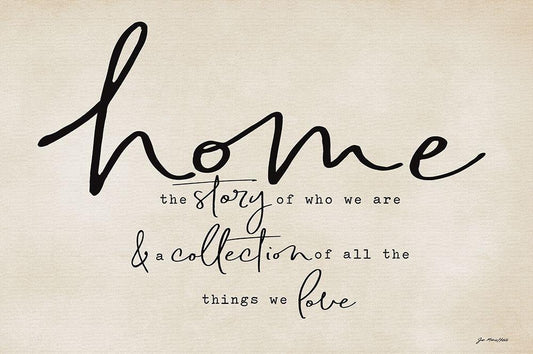 home
the story of who we are
& a collection of all the
things we love